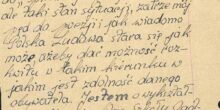 ale taki stan sytuacji, zatrze mój
pęd do poezji i jak wiadomo
Polska Ludowa stara się jak
może ażeby dać możność roz-
kwitu w takim kierunku w
jakim jest zdolność danego
obywatela. Jestem o wykształ-